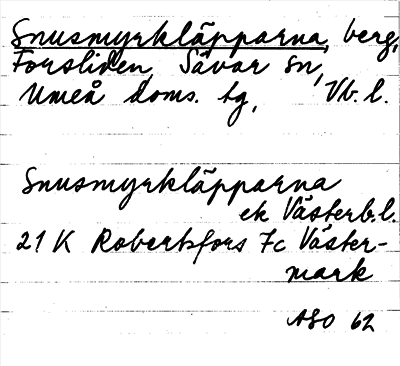 Snusmyrkläpparna, berg,
Forsliden, Sävar sn,
Umeå doms. tg, Vb. l.
Snusmyrkläpparna
ek Västerb.l.
21 K Robertsfors 7c Väster-
mark
ASO 62